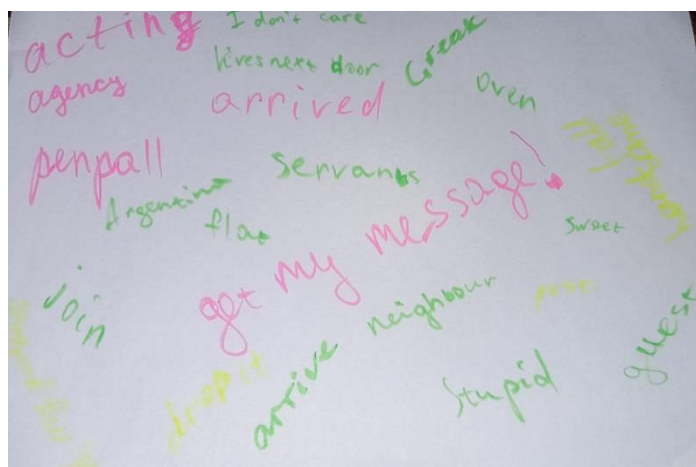 acting
I don't care
lives next door
Greak
agency
arrived
oven
penpall
servants
Argentina
flat
get my message!
sweet
join
neighbour
drop it
arrive
stupid
guest